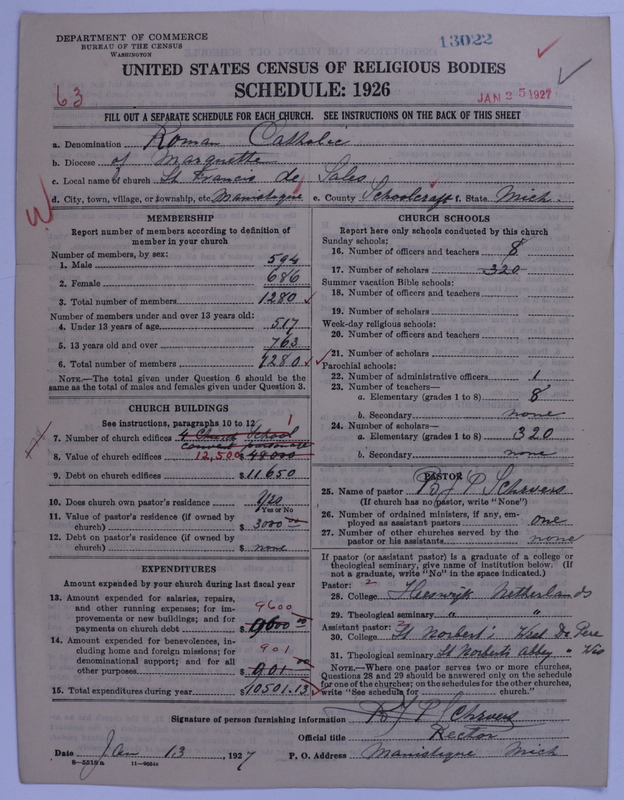 DEPARTMENT OF COMMERCE
BUREAU OF THE CENSUS
WASHINGTON
13022
UNITED STATES CENSUS OF RELIGIOUS BODIES
SCHEDULE: 1926
63
JAN 25 1927
FILL OUT A SEPARATE SCHEDULE FOR EACH CHURCH. SEE INSTRUCTIONS ON THE BACK OF THIS SHEET
a. Denomination Roman Catholic
b. Diocese of Marquette
c. Local name of church St Francis de Sales
d. City, town, village, or township, etc. Manistique e. County Schoolcraft f. State Mich.
MEMBERSHIP
Report number of members according to definition of
member in your church
Number of members, by sex:
1. Male 594
2. Female 686
3. Total number of members 1280
Number of members under and over 13 years old:
4. Under 13 years of age 517
5. 13 years old and over 763
6. Total number of members 1280
NOTE.—The total given under Question 6 should be the
same as the total of males and females given under Question 3.
CHURCH BUILDINGS
See instructions, paragraphs 10 to 12
1
7. Number of church edifices 4 Church School
convent parsonate
8. Value of church edifices 12,500 $ 48000
9. Debt on church edifices $ 11650
10. Does church own pastor's residence Yes
Yes or No
11. Value of pastor's residence (if owned by
church) $ 3000 00
12. Debt on pastor's residence (if owned by
church) $ none
EXPENDITURES
Amount expended by your church during last fiscal year
13. Amount expended for salaries, repairs,
and other running expenses; for im-
provements or new buildings; and for
payments on church debt $ 9600 00
9600
14. Amount expended for benevolences, in-
cluding home and foreign missions; for
denominational support; and for all
other purposes $ 901 00
901
15. Total expenditures during year $ 10501.13
CHURCH SCHOOLS
Report here only schools conducted by this church
Sunday schools:
16. Number of officers and teachers 8
17. Number of scholars 320
Summer vacation Bible schools:
18. Number of officers and teachers
19. Number of scholars
Week-day religious schools:
20. Number of officers and teachers
21. Number of scholars
Parochial schools:
22. Number of administrative officers 1
23. Number of teachers—
a. Elementary (grades 1 to 8) 8
b. Secondary none
24. Number of scholars—
a. Elementary (grades 1 to 8) 320
b. Secondary none
PASTOR
25. Name of pastor B J P Schevers
(If church has no pastor, write "None")
26. Number of ordained ministers, if any, em-
ployed as assistant pastors one
27. Number of other churches served by the
pastor or his assistants none
If pastor (or assistant pastor) is a graduate of a college or
theological seminary, give name of institution below. (If
not a graduate, write "No" in the space indicated.)
Pastor: 2
28. College Heeswijk Netherlands
29. Theological seminary " "
Assistant pastor: 2
30. College St Norbert's West De Pere
31. Theological seminary St Norberts Abbey " Wis
NOTE.—Where one pastor serves two or more churches,
Questions 28 and 29 should be answered only on the schedule
for one of the churches; on the schedules for the other churches,
write "See schedule for church."
Signature of person furnishing information B J P Schevers
Official title Rector
Date Jan 13, 1927 P. O. Address Manistique Mich
8-5519a 11-9664a